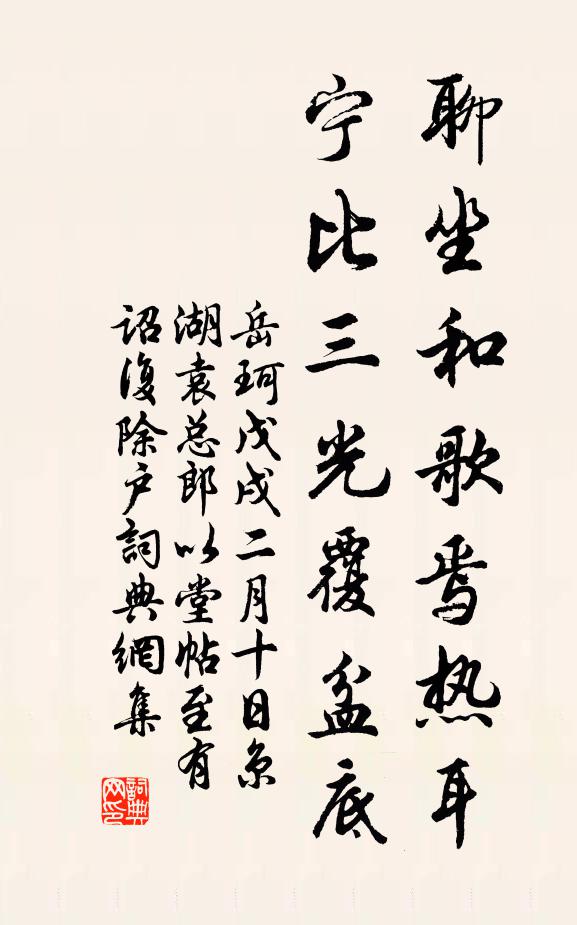 聊坐和歌焉热耳
宁比三光覆盆底
岳珂戊戌二月十日京
湖袁总郎以堂帖至有
诏復除户詞典網集
詞典网印